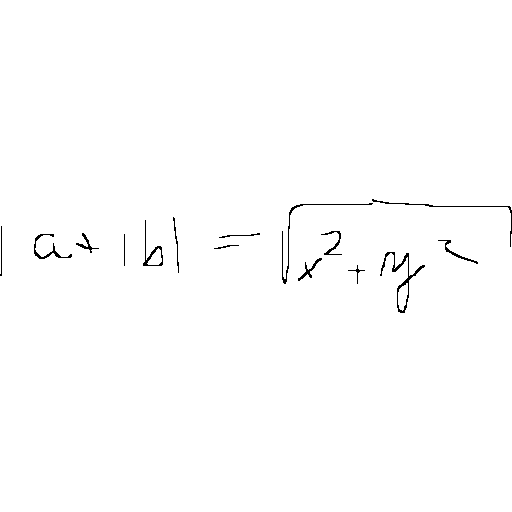 | a + | b | = √(x² + y²)